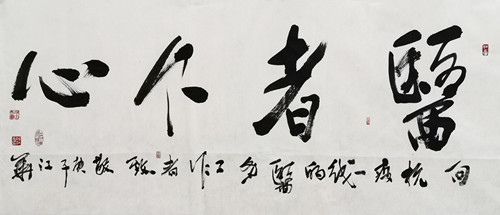 醫者仁心
向抗疫一线的醫务工作者致敬 庚子